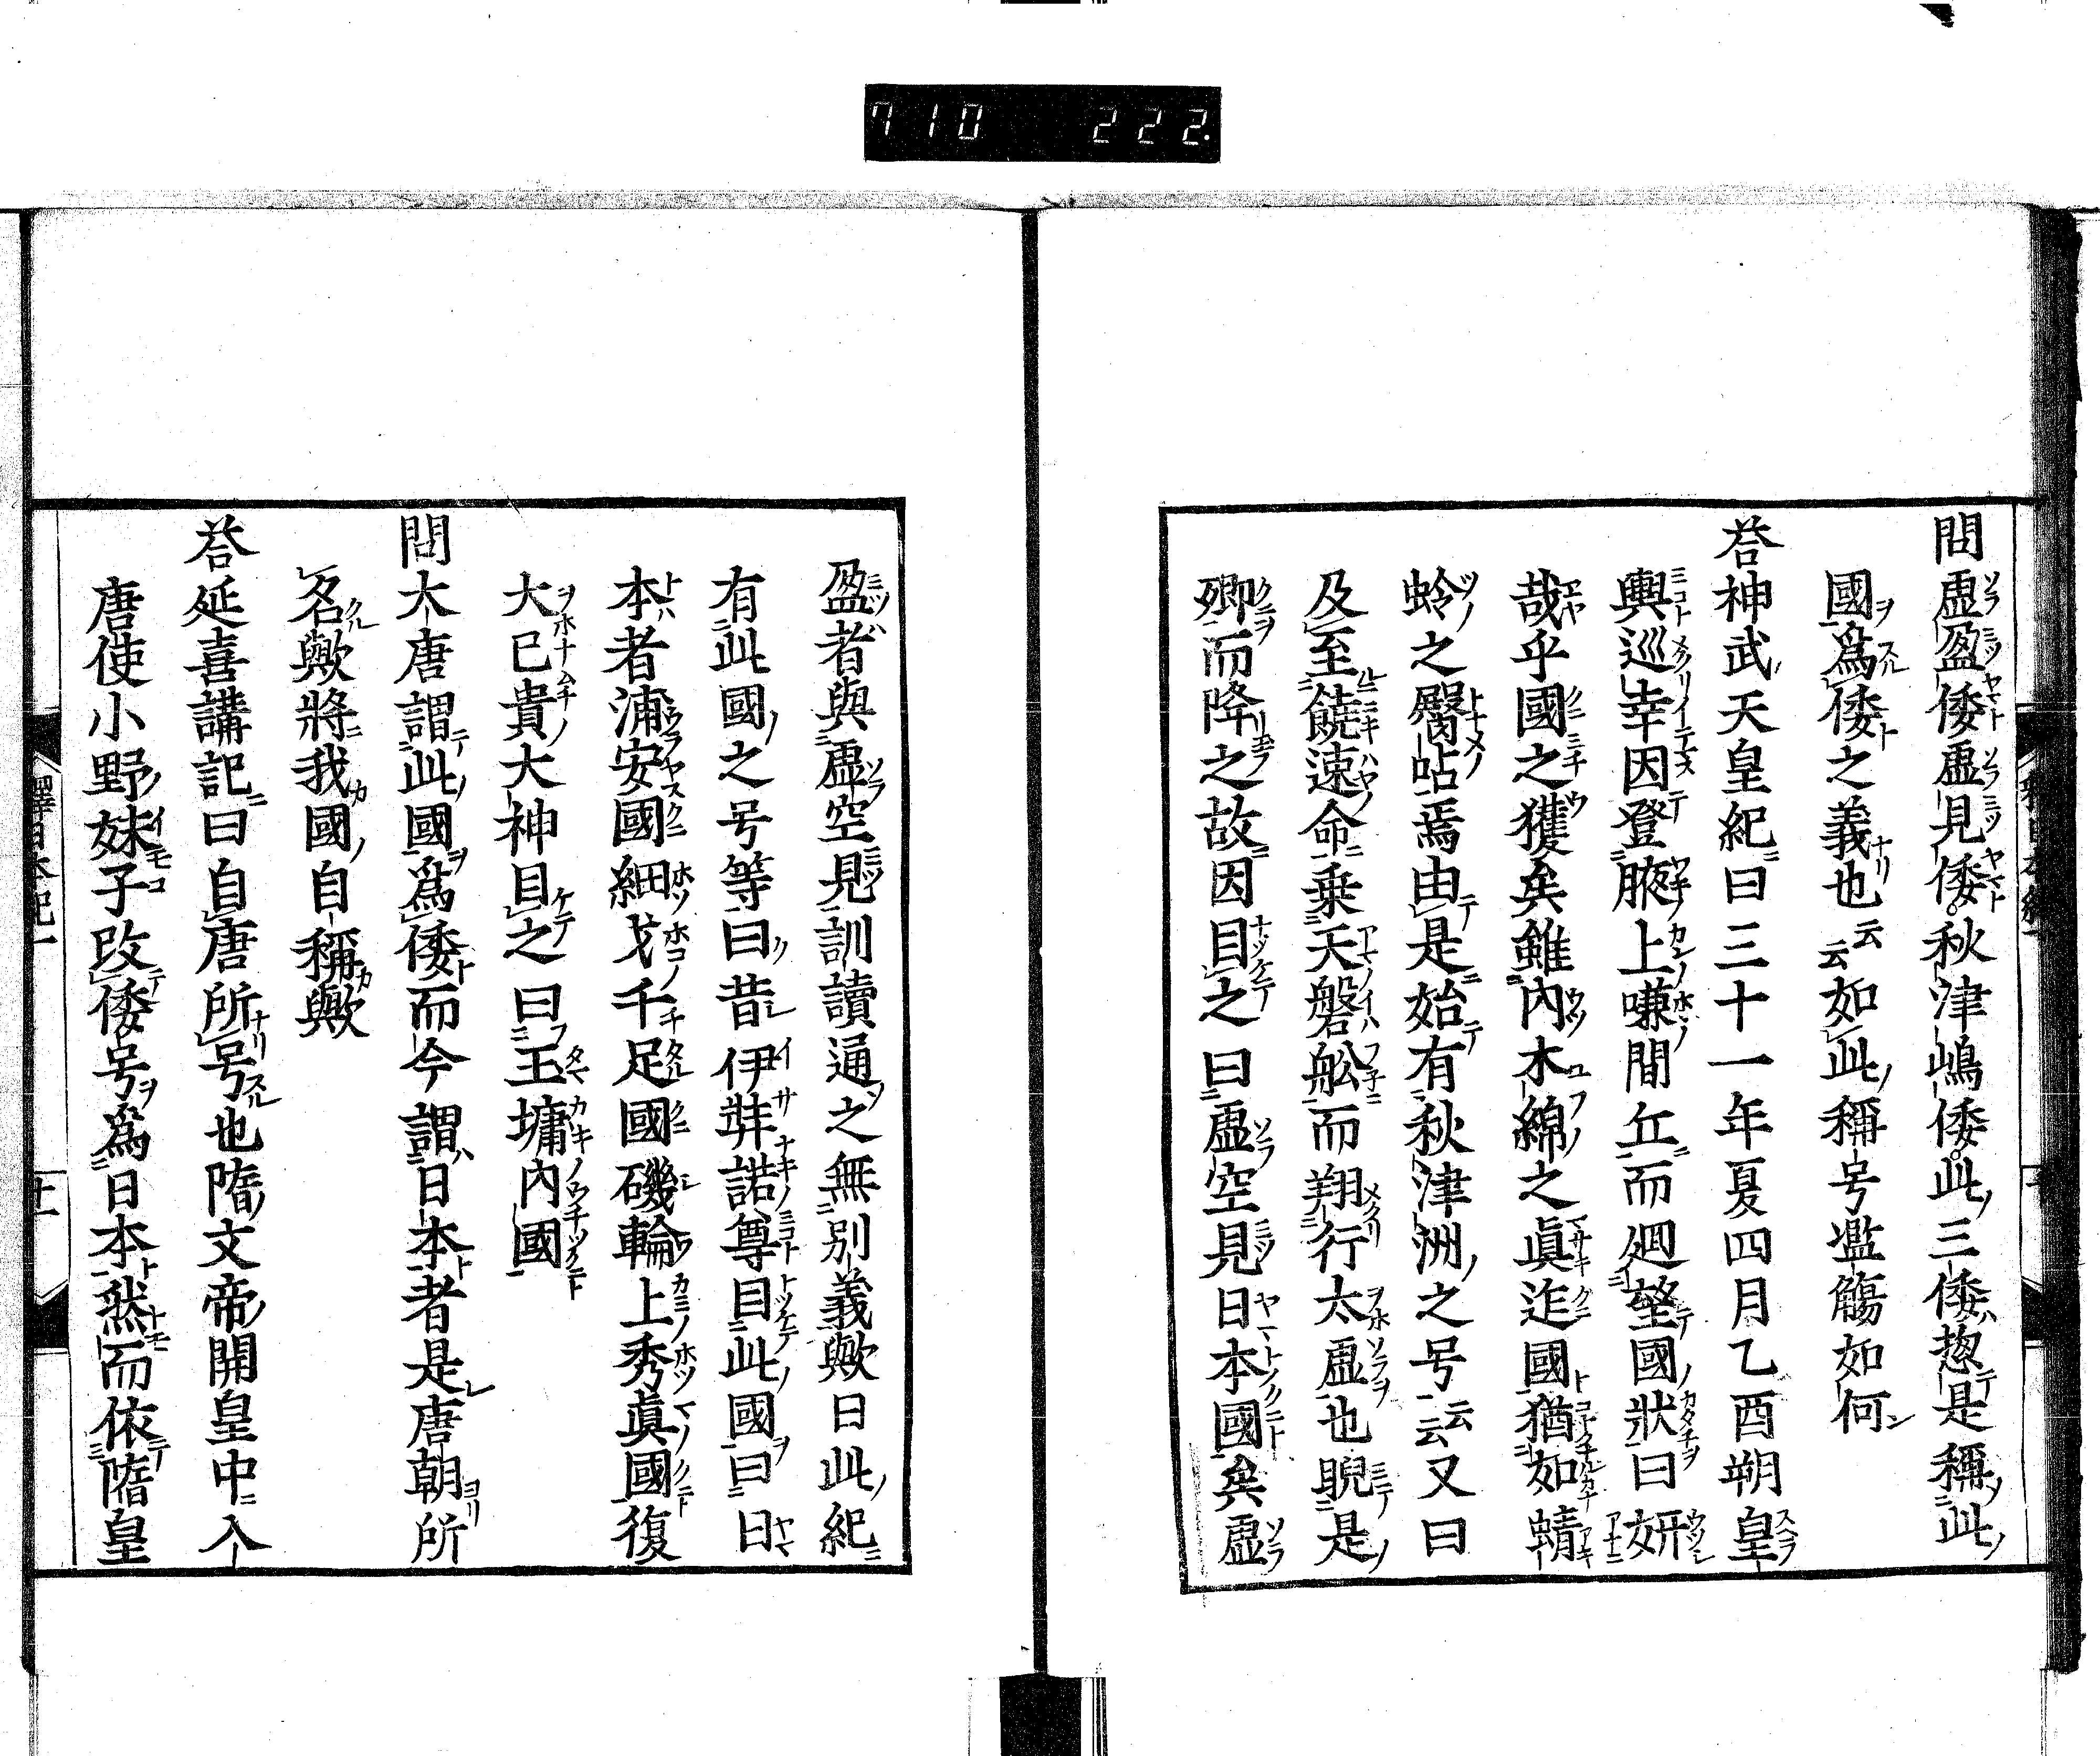 710 222.
問虚盈倭虚見倭秋津嶋倭此三倭惣是稱此
國爲倭之義也云云如此稱号濫觴如何
荅神武天皇紀曰三十一年夏四月乙酉朔皇
輿巡幸因登腋上嗛間丘而廻望國狀曰妍
哉乎國之獲矣雖内木綿之眞迮國猶如蜻
蛉之臀呫焉由是始有秋津洲之号云云又曰
及至饒速命乗天磐舩而翔行太虚也睨是
郷而降之故因目之曰虚空見日本國矣虚
盈者與虚空見訓讀通之無別義歟曰此紀
有此國之号等曰昔伊弉諾尊目此國曰日
本者浦安國細戈千足國磯輪上秀眞國復
大己貴大神目之曰玉墻内國
問大唐謂此國爲倭而今謂日本者是唐朝所
名歟將我國自稱歟
荅延喜講記曰自唐所号也隋文帝開皇中入
唐使小野妹子改倭号爲日本然而依隋皇
釋日本紀一
十一